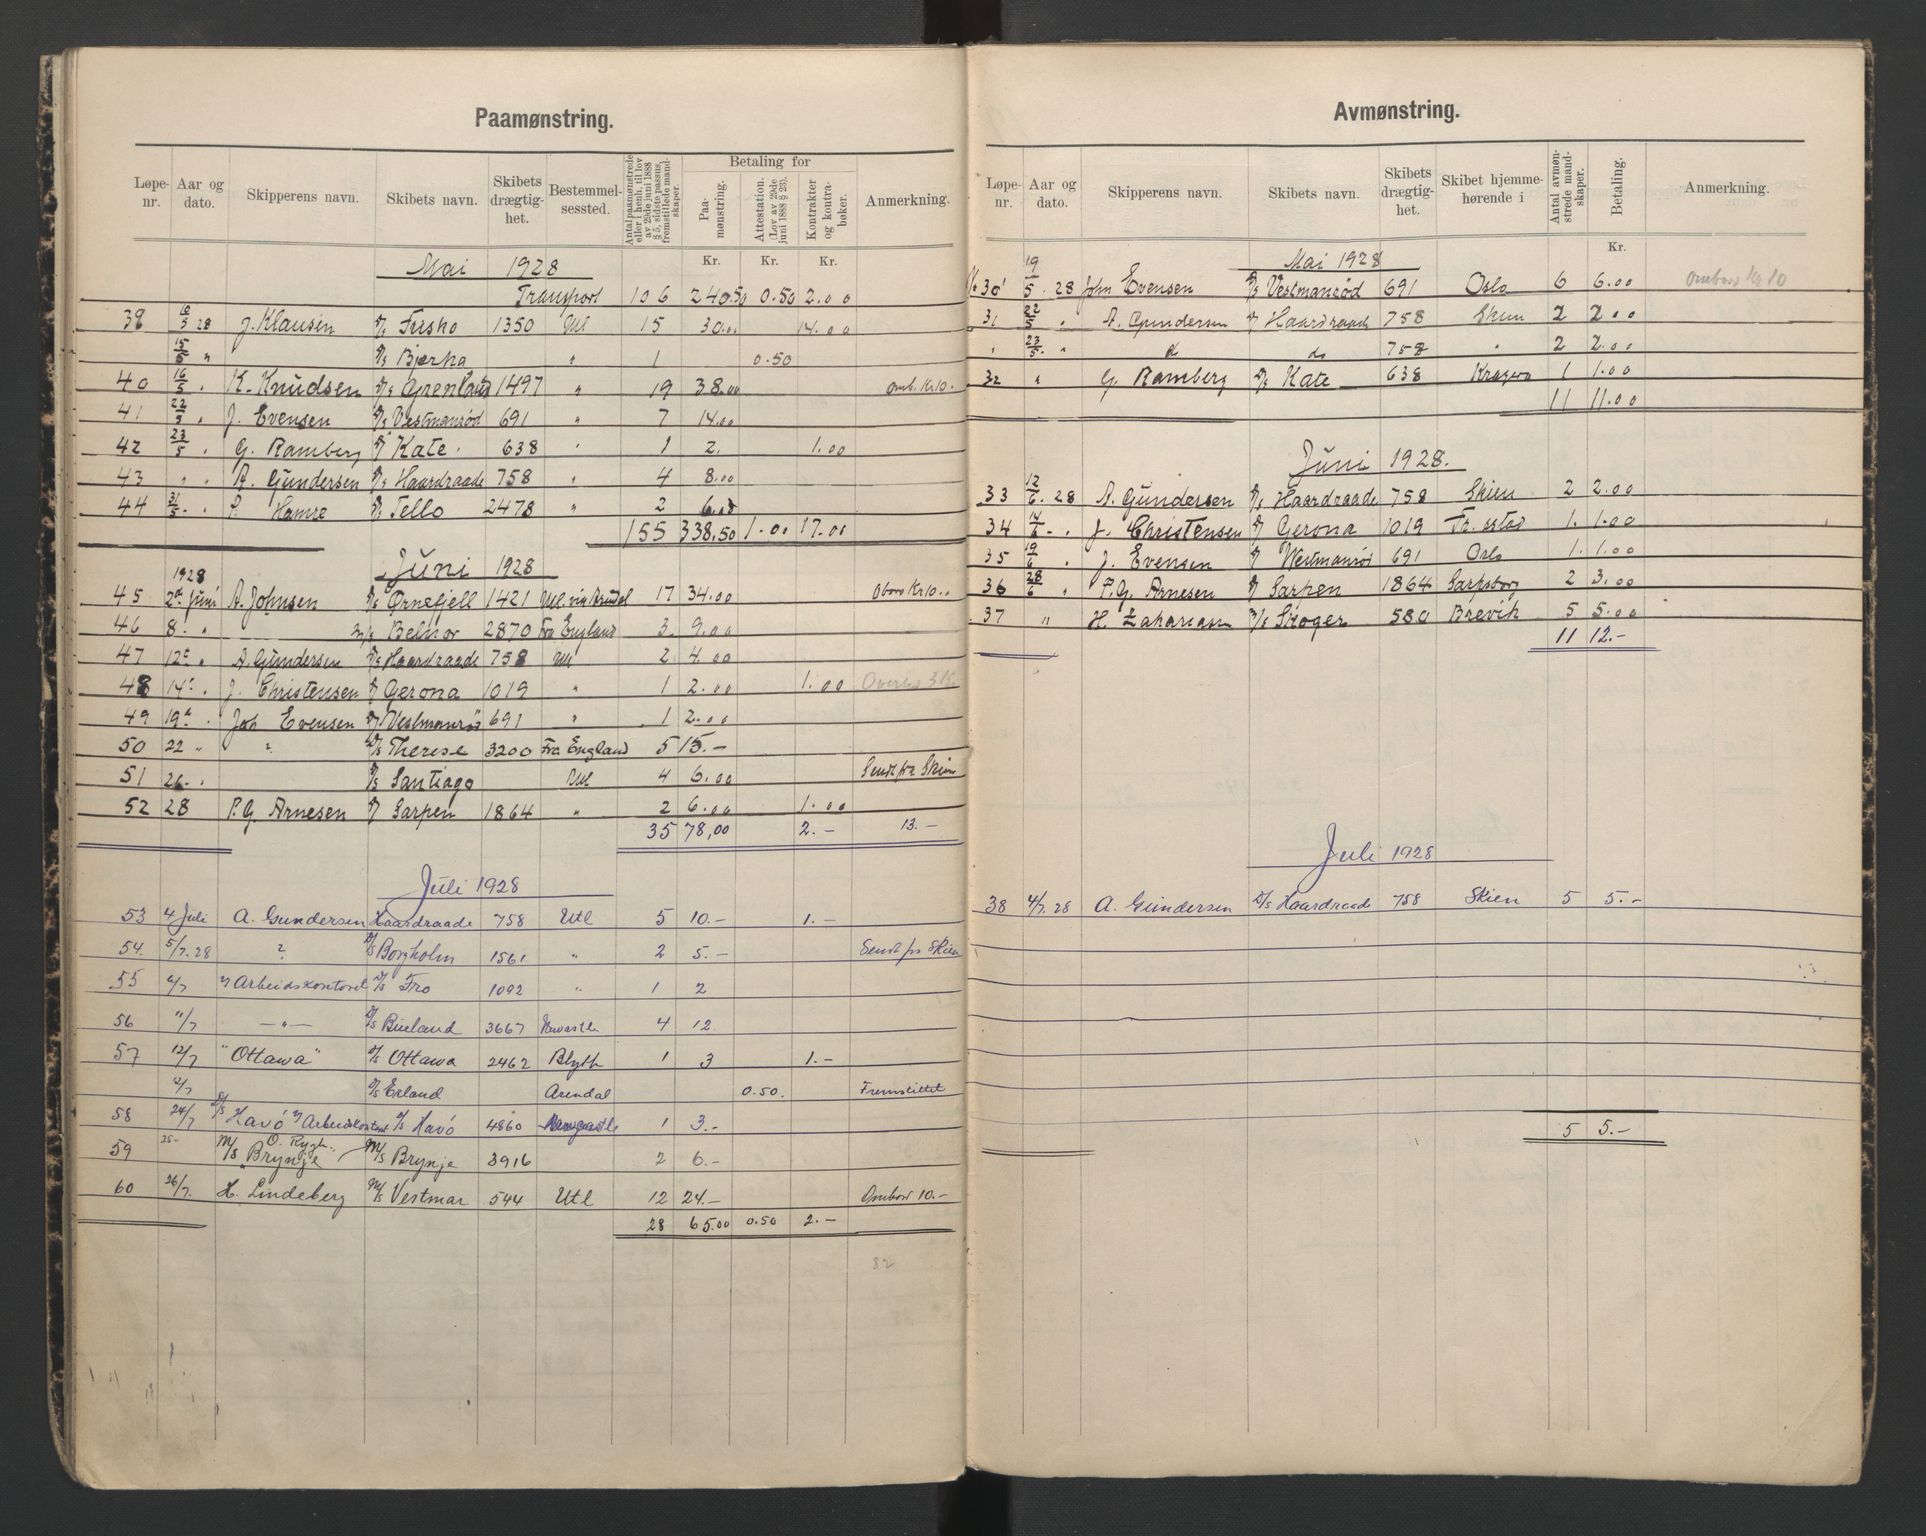 Paamønstring.
Løpe-nr. Aar og dato. Skipperens navn. Skibets navn. Skibets drægtig-het. Bestemmel-sessted. Antal paamønstrede eller i henh. til lov av 29de juni 1888 § 5, sidste passus, fremstillede mand-skaper. Betaling for Paa-mønstring. Attestation. (Lov av 29de juni 1888 § 23). Kontrakter og kontra-bøker. Anmerkning.
Kr. Kr. Kr.
Mai 1928
Transport 106 240.50 0.50 2.00
38 16/5 28 J. Klausen D/s Fusko 1350 Utl 15 30.00 14.00
15/5 " D/s Bjerka " 1 0.50
40 16/5 . K. Knudsen D/s Grenland 1497 " 19 38.00 omb. Kr 10.
41 22/5 . J. Evensen D/s Vestmanrød 691 " 7 14.00
42 23/5 . G. Ramberg D/ Kate 638 " 1 2. 1.00
43 " . A. Gundersen D/s Haardraade 758 " 4 8.00
44 31/5 . P. Hamre D/s Tello 2478 " 2 6.00
155 338.50 1.00 17.00
Juni 1928
1928
45 2de Juni A. Johnsen D/s Ørnefjell 1421 Utl. via Arendal 17 34.00 Obors Kr 10..
46 8. " M/s Belnor 2870 Fra England 3 9.00
47 12te " A. Gundersen D/s Haardraade 758 Utl 2 4.00
48 14de . J. Christensen D/ Gerona 1019 " 1 2.00 1.00
49 19de . Joh Evensen D/ Vestmanrø" 691 " 1 2.00
50 22 " ? D/s Therese 3200 Fra England 5 15.-
51 26. . D/s Santiago Utl 4 6.00 Sendt fra Skien
52 28 P. G. Arnesen D/ Sarpen 1864 " 2 6.00 1.00
35 78,00 2.- 13.-
Juli 1928
53 4 Juli A. Gundersen Haardraade 758 Utl 5 10.- 1.-
54. 5/7.28 ? D/s Borgholm 1561 " 2 5.- Sendt fra Skien
55 6/7 v/ Arbeidskontoret D/s Fro 1092 " 1 2
56 11/7 -"- D/s Büeland 3667 Newcastle 4 12.
57 12/7 "Ottawa" D/s Ottawa 2462 Blyth 1 3 1.-
12/7 D/s Erland Arendal 0.50. Fremstillet
58 24/7 D/s Havö v/ Arbeidskontoret D/s Havö 4860 Newcastle 1 3.-
59 25- M/s O. Rygh. "Brynje M/s Brynje 3916 2 6.-
60 26/7. H. Lindeberg M/s Vestmar 544 Utl 12 24.- Ombord 10.-
28 65.00 0.50 2.-
82
Avmønstring.
Løpe-nr. Aar og dato. Skipperens navn. Skibets navn. Skibets drægtig-het. Skibet hjemme-hørende i Antal avmøn-strede mand-skaper. Betaling. Anmerkning.
Kr.
Mai 1928
30 19/5 28 John Evensen D/s Vestmanrød 691 Oslo 6 6.00 Ombord Kr 10
31 22/5 " A. Gundersen D/ Haardraade 758 Skien 2 2.00
" 23/5. " do do 758 " 2 2.00
32 " G. Ramberg D/s Kate 638 Kragerø 1 1.00
11 11.00
Juni 1928.
33 12/6. 28 A. Gundersen D/s Haardraade 758 Skien 2 2.00
34 14/6 - . J. Christensen D/ Gerona 1019 Fr. stad 1. 1.00
35 19/6 . J. Evensen D/ Westmanrød 691 Oslo 1. 1.00
36 28/6 . P. G. Arnesen D/ Sarpen 1864 Sarpsborg 2 3.00
37 " H. Zahariasen M/s Skoger 580 Brevik 5 5.00
11 12.-
Juli 1928
38 4/7.28 A. Gundersen D/s Haardraade 758 Skien 5 5.-
5 5.-